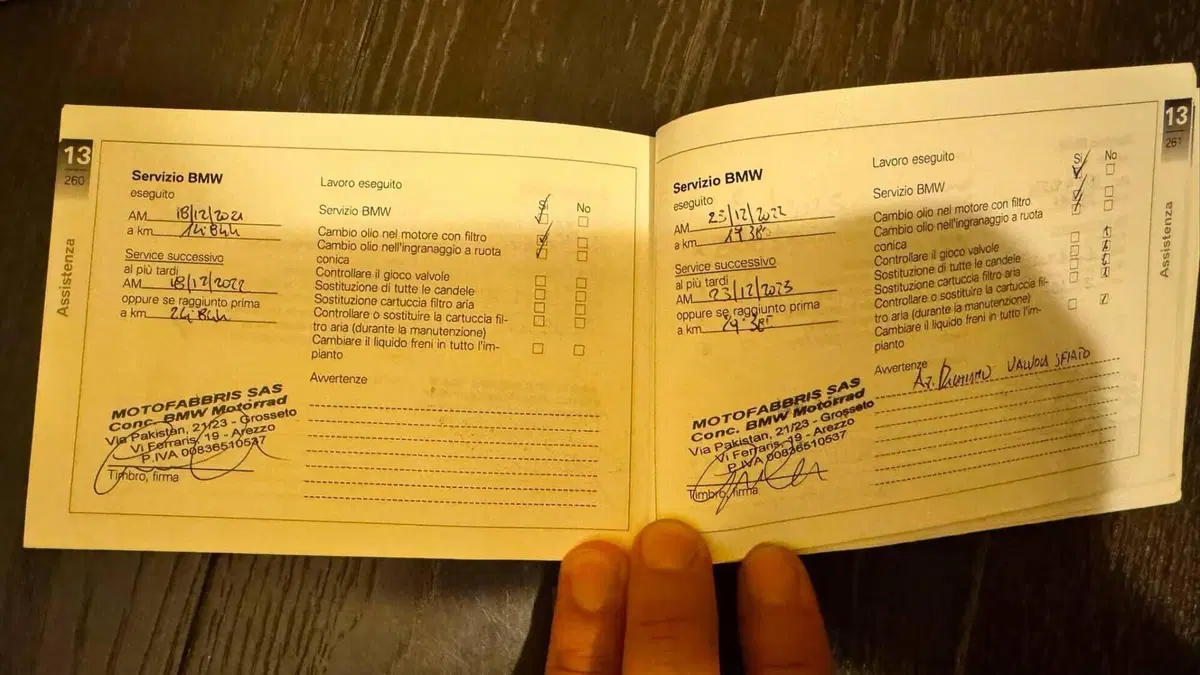 13
260
Assistenza
Servizio BMW
eseguito
AM 18/12/2021
a km 14.844
Service successivo
al più tardi
AM 18/12/2022
oppure se raggiunto prima
a km 24.844
MOTOFABBRIS SAS
Conc. BMW Motorrad
Via Pakistan, 21/23 - Grosseto
Vi Ferraris, 19 - Arezzo
P.IVA 00836510537
Timbro, firma
Lavoro eseguito
Sì No
Servizio BMW
Cambio olio nel motore con filtro
Cambio olio nell'ingranaggio a ruota
conica
Controllare il gioco valvole
Sostituzione di tutte le candele
Sostituzione cartuccia filtro aria
Controllare o sostituire la cartuccia fil-
tro aria (durante la manutenzione)
Cambiare il liquido freni in tutto l'im-
pianto
Avvertenze
13
261
Assistenza
Servizio BMW
eseguito
AM 23/12/2022
a km
Service successivo
al più tardi
AM 23/12/2023
oppure se raggiunto prima
a km
MOTOFABBRIS SAS
Conc. BMW Motorrad
Via Pakistan, 21/23 - Grosseto
Vi Ferraris, 19 - Arezzo
P.IVA 00836510537
Timbro, firma
Lavoro eseguito
Sì No
Servizio BMW
Cambio olio nel motore con filtro
Cambio olio nell'ingranaggio a ruota
conica
Controllare il gioco valvole
Sostituzione di tutte le candele
Sostituzione cartuccia filtro aria
Controllare o sostituire la cartuccia fil-
tro aria (durante la manutenzione)
Cambiare il liquido freni in tutto l'im-
pianto
Avvertenze
Az. Richiamo VALVOLA SFIATO